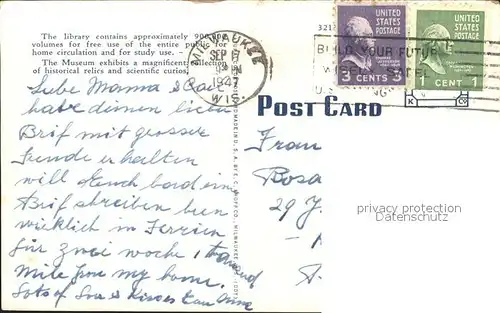 The library contains approximately 900,000
volumes for free use of the entire public for
home circulation and for study use.
The Museum exhibits a magnificent collection
of historical relics and scientific curios.
MILWAUKEE
SEP
194
WIS.
3213
UNITED STATES
POSTAGE
3 CENTS 3
UNITED STATES
POSTAGE
1 CENT 1
BUILD YOUR FUTURE
WISELY
U.S. SAVINGS
K CO
POST CARD
Liebe Mamma &
habe deinen lieben
Brif mit grosser
Freude erhalten
will Euch bald ein
Brif schreiben bin
wirklich in Ferrien
für zwei woche 1 tausend
Mile from my home.
Lots of Love & Kisses
Frau
Rosa
29 J.
privacy protection
Datenschutz